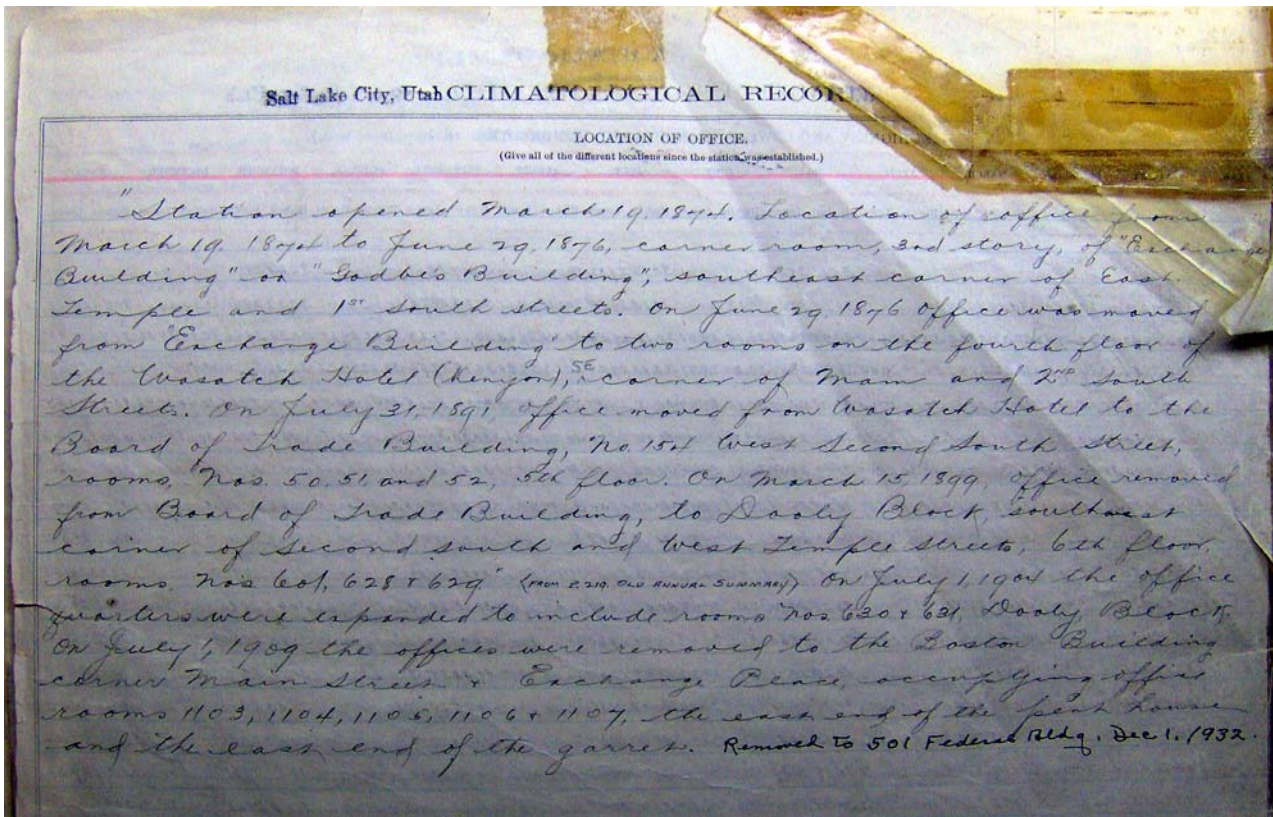 Salt Lake City, Utah CLIMATOLOGICAL RECORD
LOCATION OF OFFICE.
(Give all of the different locations since the station was established.)
"Station opened March 19, 1874. Location of office from
March 19, 1874 to June 29, 1876, corner room, 3rd story, of "Exchange
Building" or "Godbe's Building", southeast corner of East
Temple and 1st South streets. On June 29, 1876 office was moved
from "Exchange Building" to two rooms on the fourth floor of
the Wasatch Hotel (Kenyon), SE corner of Main and 2nd South
Streets. On July 31, 1891, office moved from Wasatch Hotel to the
Board of Trade Building, No. 154 West Second South Street,
rooms, Nos. 50, 51 and 52, 5th floor. On March 15, 1899, office removed
from Board of Trade Building, to Dooly Block, southeast
corner of Second South and West Temple Streets, 6th floor,
rooms, Nos 601, 628 & 629" (FROM P. 219, OLD ANNUAL SUMMARY) On July 1, 1904 the office
quarters were expanded to include rooms Nos 630 & 631, Dooly Block.
On July 1, 1909 the offices were removed to the Boston Building
corner Main Street & Exchange Place, occupying office
rooms 1103, 1104, 1105, 1106 & 1107, the east end of the pent house
and the east end of the garret. Removed to 501 Federal Bldg. Dec 1, 1932.